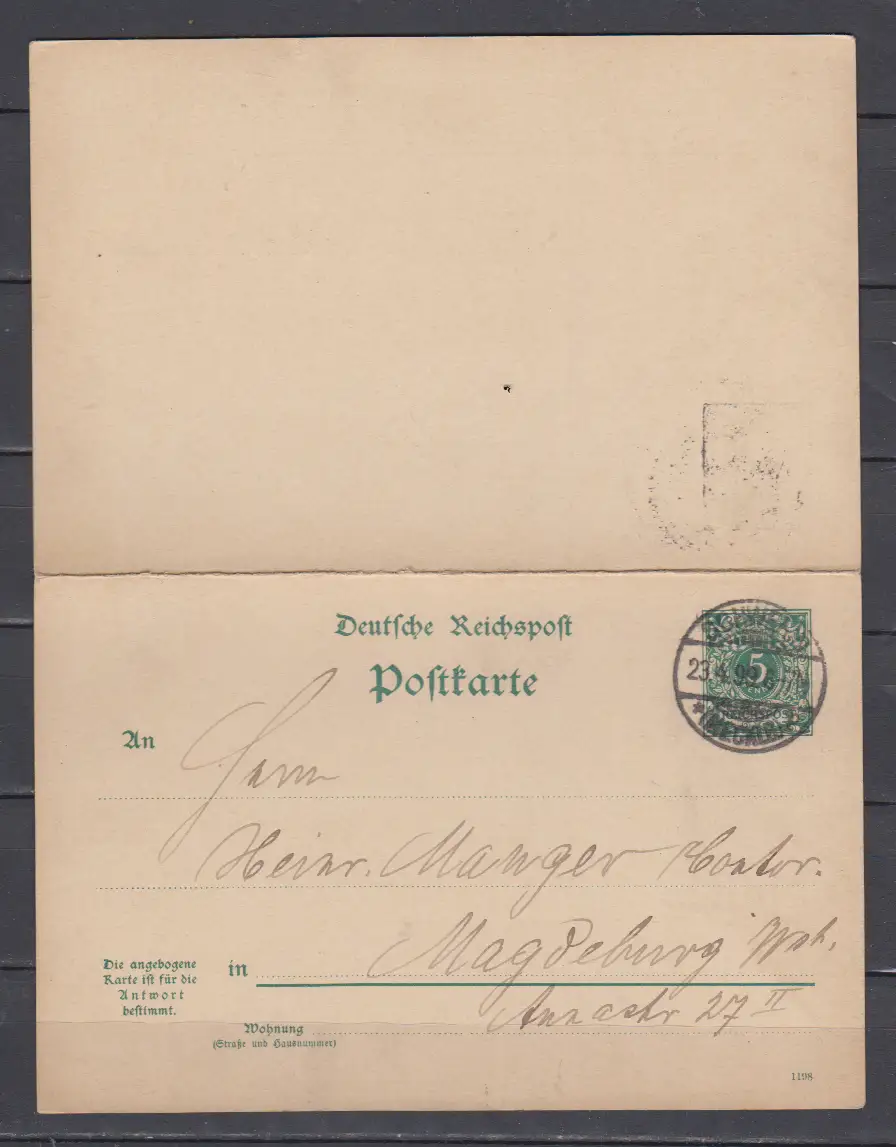 Deutsche Reichspost
Postkarte
23.4.99
5
An
Herrn
Heinr. Manger
in Magdeburg Wst.
Annastr 27 II
Die angebogene
Karte ist für die
Antwort
bestimmt.
Wohnung
(Straße und Hausnummer)
1198